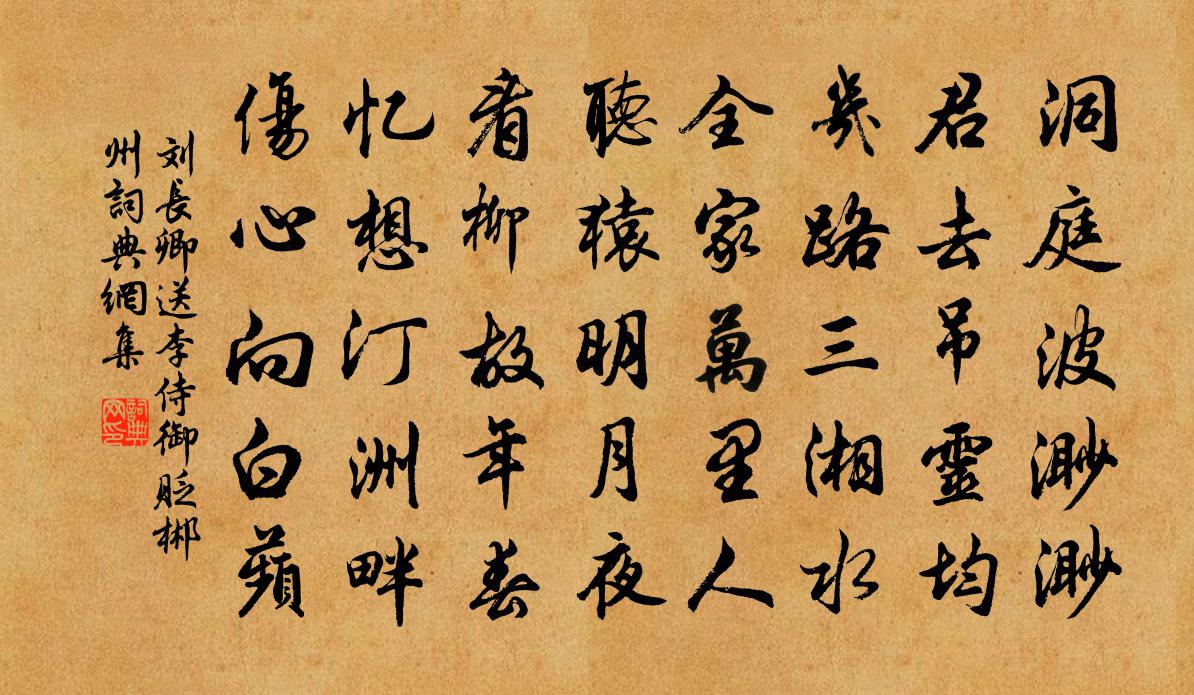 洞庭波渺渺
君去吊靈均
幾路三湘水
全家萬里人
聽猿明月夜
看柳故年春
忆想汀洲畔
傷心向白蘋
刘長卿送李侍御貶郴
州詞典網集
詞典网印